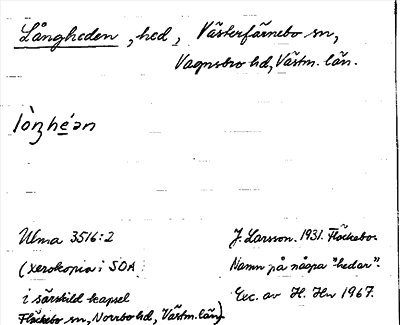 Långheden, hed, Västerfärnebo sn,
Vagnsbro hd, Västm. län.
lòŋhéən
Ulma 3516:2
(xerokopia i SOA
i särskild kapsel
Fläckebo sn, Norrbo hd, Västm. län)
J. Larsson. 1931. Fläckebo.
Namn på några "hedar".
Exc. av H. Hn 1967.